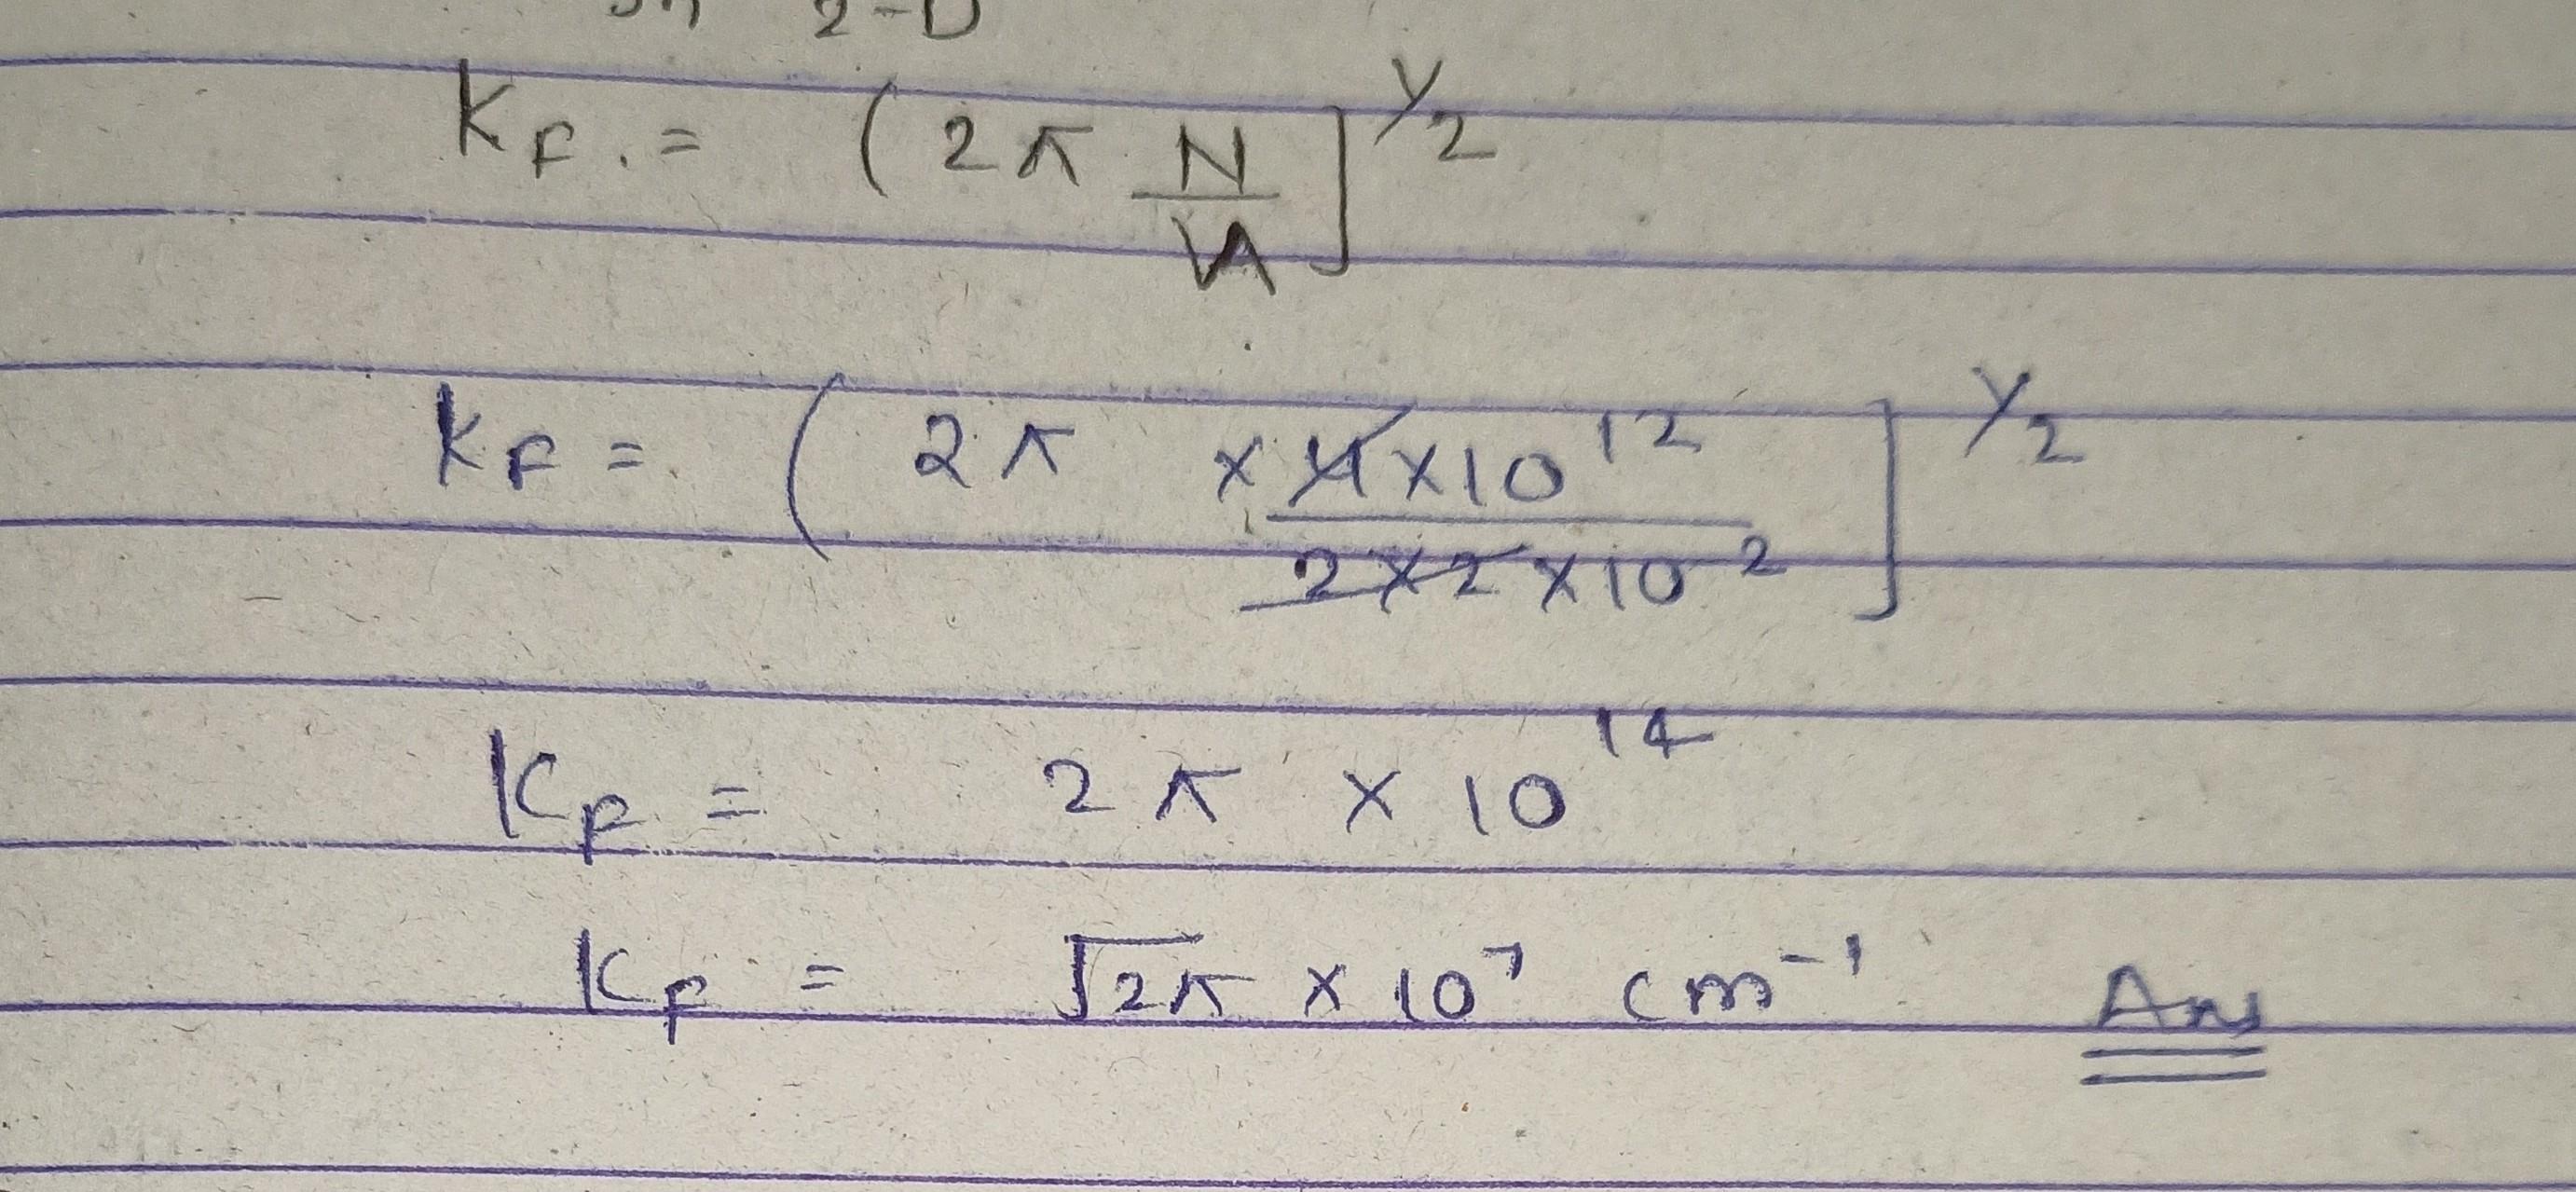 in 2-D
K_F. = (2π N/A]^1/2
K_F = (2π × 4×10^12 / 2×2×10^2]^1/2
K_F = 2π × 10^14
K_F = √2π × 10^7 cm^-1 Ans